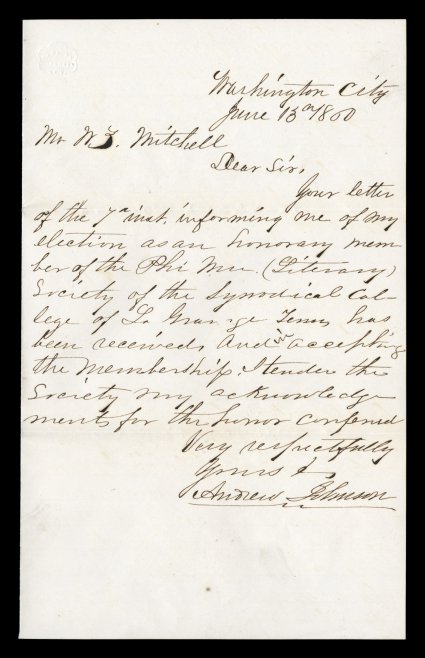 Washington City
June 13th 1860
Mr W. J. Mitchell
Dear Sir,
Your letter
of the 7th inst. informing me of my
election as an honorary mem-
ber of the Phi Mu (Literary)
Society of the Synodical Col-
lege of La Grange Tenn has
been received, And in accepting
the membership, I tender the
Society my acknowledge
ments for the honor conferred
Very respectfully
Yours &
Andrew Johnson